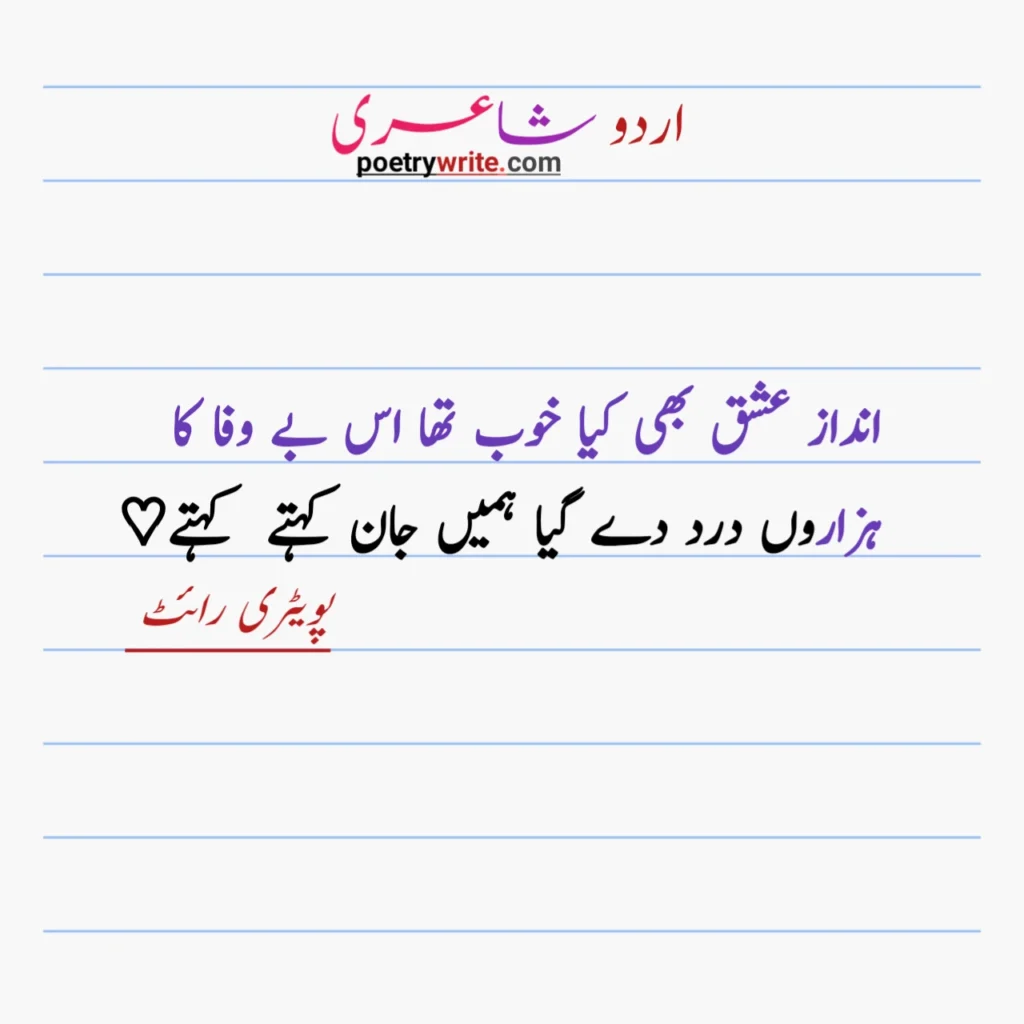 اردو شاعری
poetrywrite.com
انداز عشق بھی کیا خوب تھا اس بے وفا کا
ہزاروں درد دے گیا ہمیں جان کہتے کہتے♡
پویٹری رائٹ